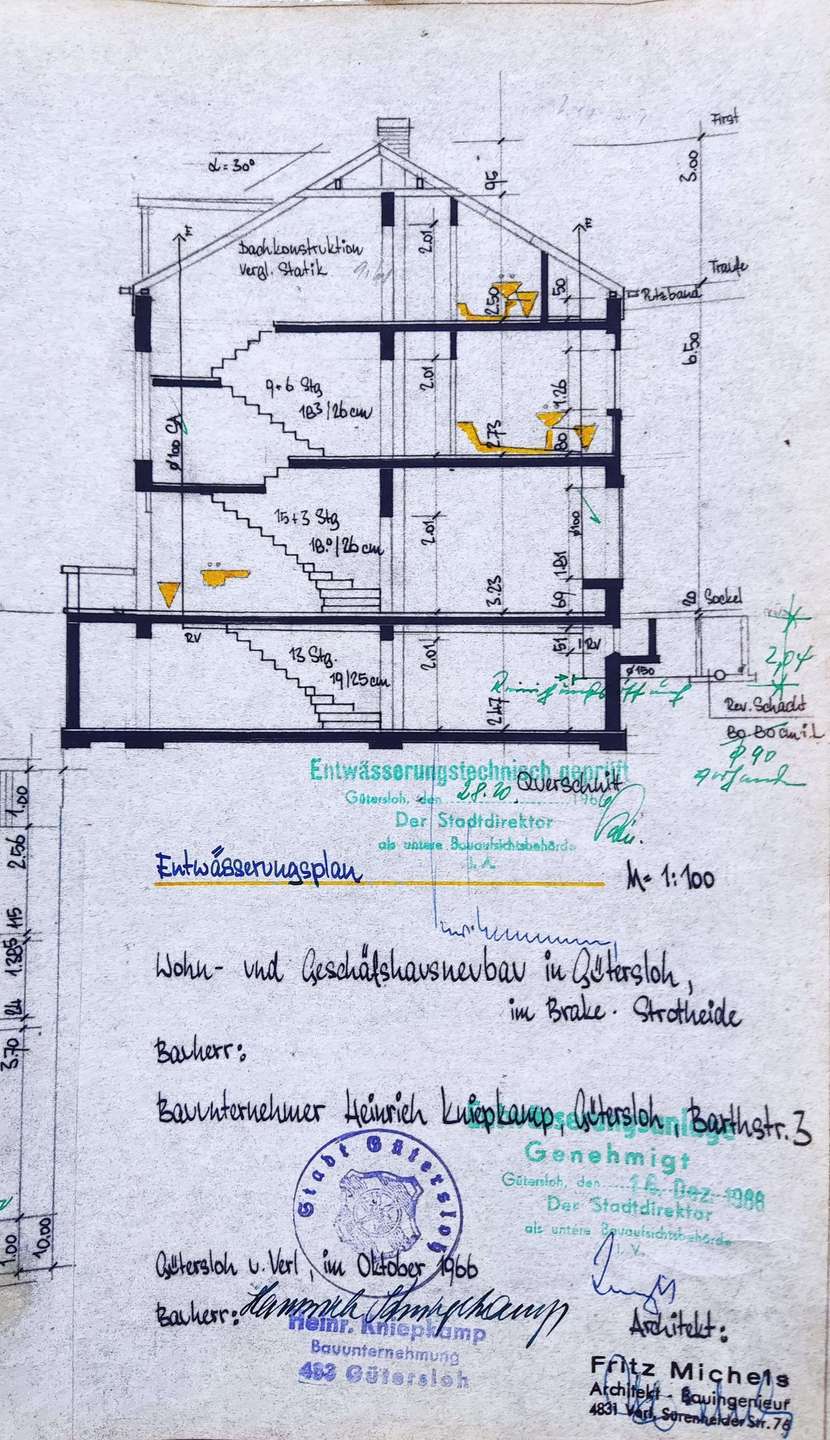 First
α = 30°
96
3.00
Dachkonstruktion
vergl. Statik
2.01
Traufe
Putzband
2.50
50
6.50
9+6 Stg
18³/26 cm
2.01
1.26
2.73
80
ø100 GA
15+3 Stg
18.⁰/26 cm
2.01
ø100
1.81
3.23
69
20
Sockel
RV
13 Stg.
19/25 cm
2.01
51
RV
ø150
2,04
Reinigungsöffnung
2.47
Rev. Schacht
80·80 cm i.L
ø 90
Entwässerungstechnisch geprüft
Querschnitt
Gütersloh, den 28.10. 1966
Der Stadtdirektor
als untere Bauaufsichtsbehörde
I. A.
Entwässerungsplan
M = 1:100
1.00
2.56
115
1.385
24
3.70
1.00
10.00
Wohn- und Geschäftshausneubau in Gütersloh,
im Brake - Strotheide
Bauherr:
Bauunternehmer Heinrich Kniepkamp, Gütersloh, Barthstr. 3
Entwässerungsanlage
Genehmigt
Gütersloh, den 16. Dez. 1966
Der Stadtdirektor
als untere Bauaufsichtsbehörde
I. V.
Stadt Gütersloh
Gütersloh u. Verl, im Oktober 1966
Bauherr:
Heinr. Kniepkamp
Bauunternehmung
483 Gütersloh
Architekt:
Fritz Michels
Architekt - Bauingenieur
4831 Verl, Sürenheider Str. 76